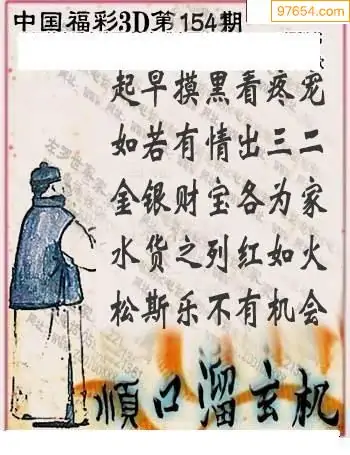 中国福彩3D第154期
97654.com
起早摸黑看疼宠
如若有情出三二
金银财宝各为家
水货之列红如火
松斯乐不有机会
顺口溜玄机